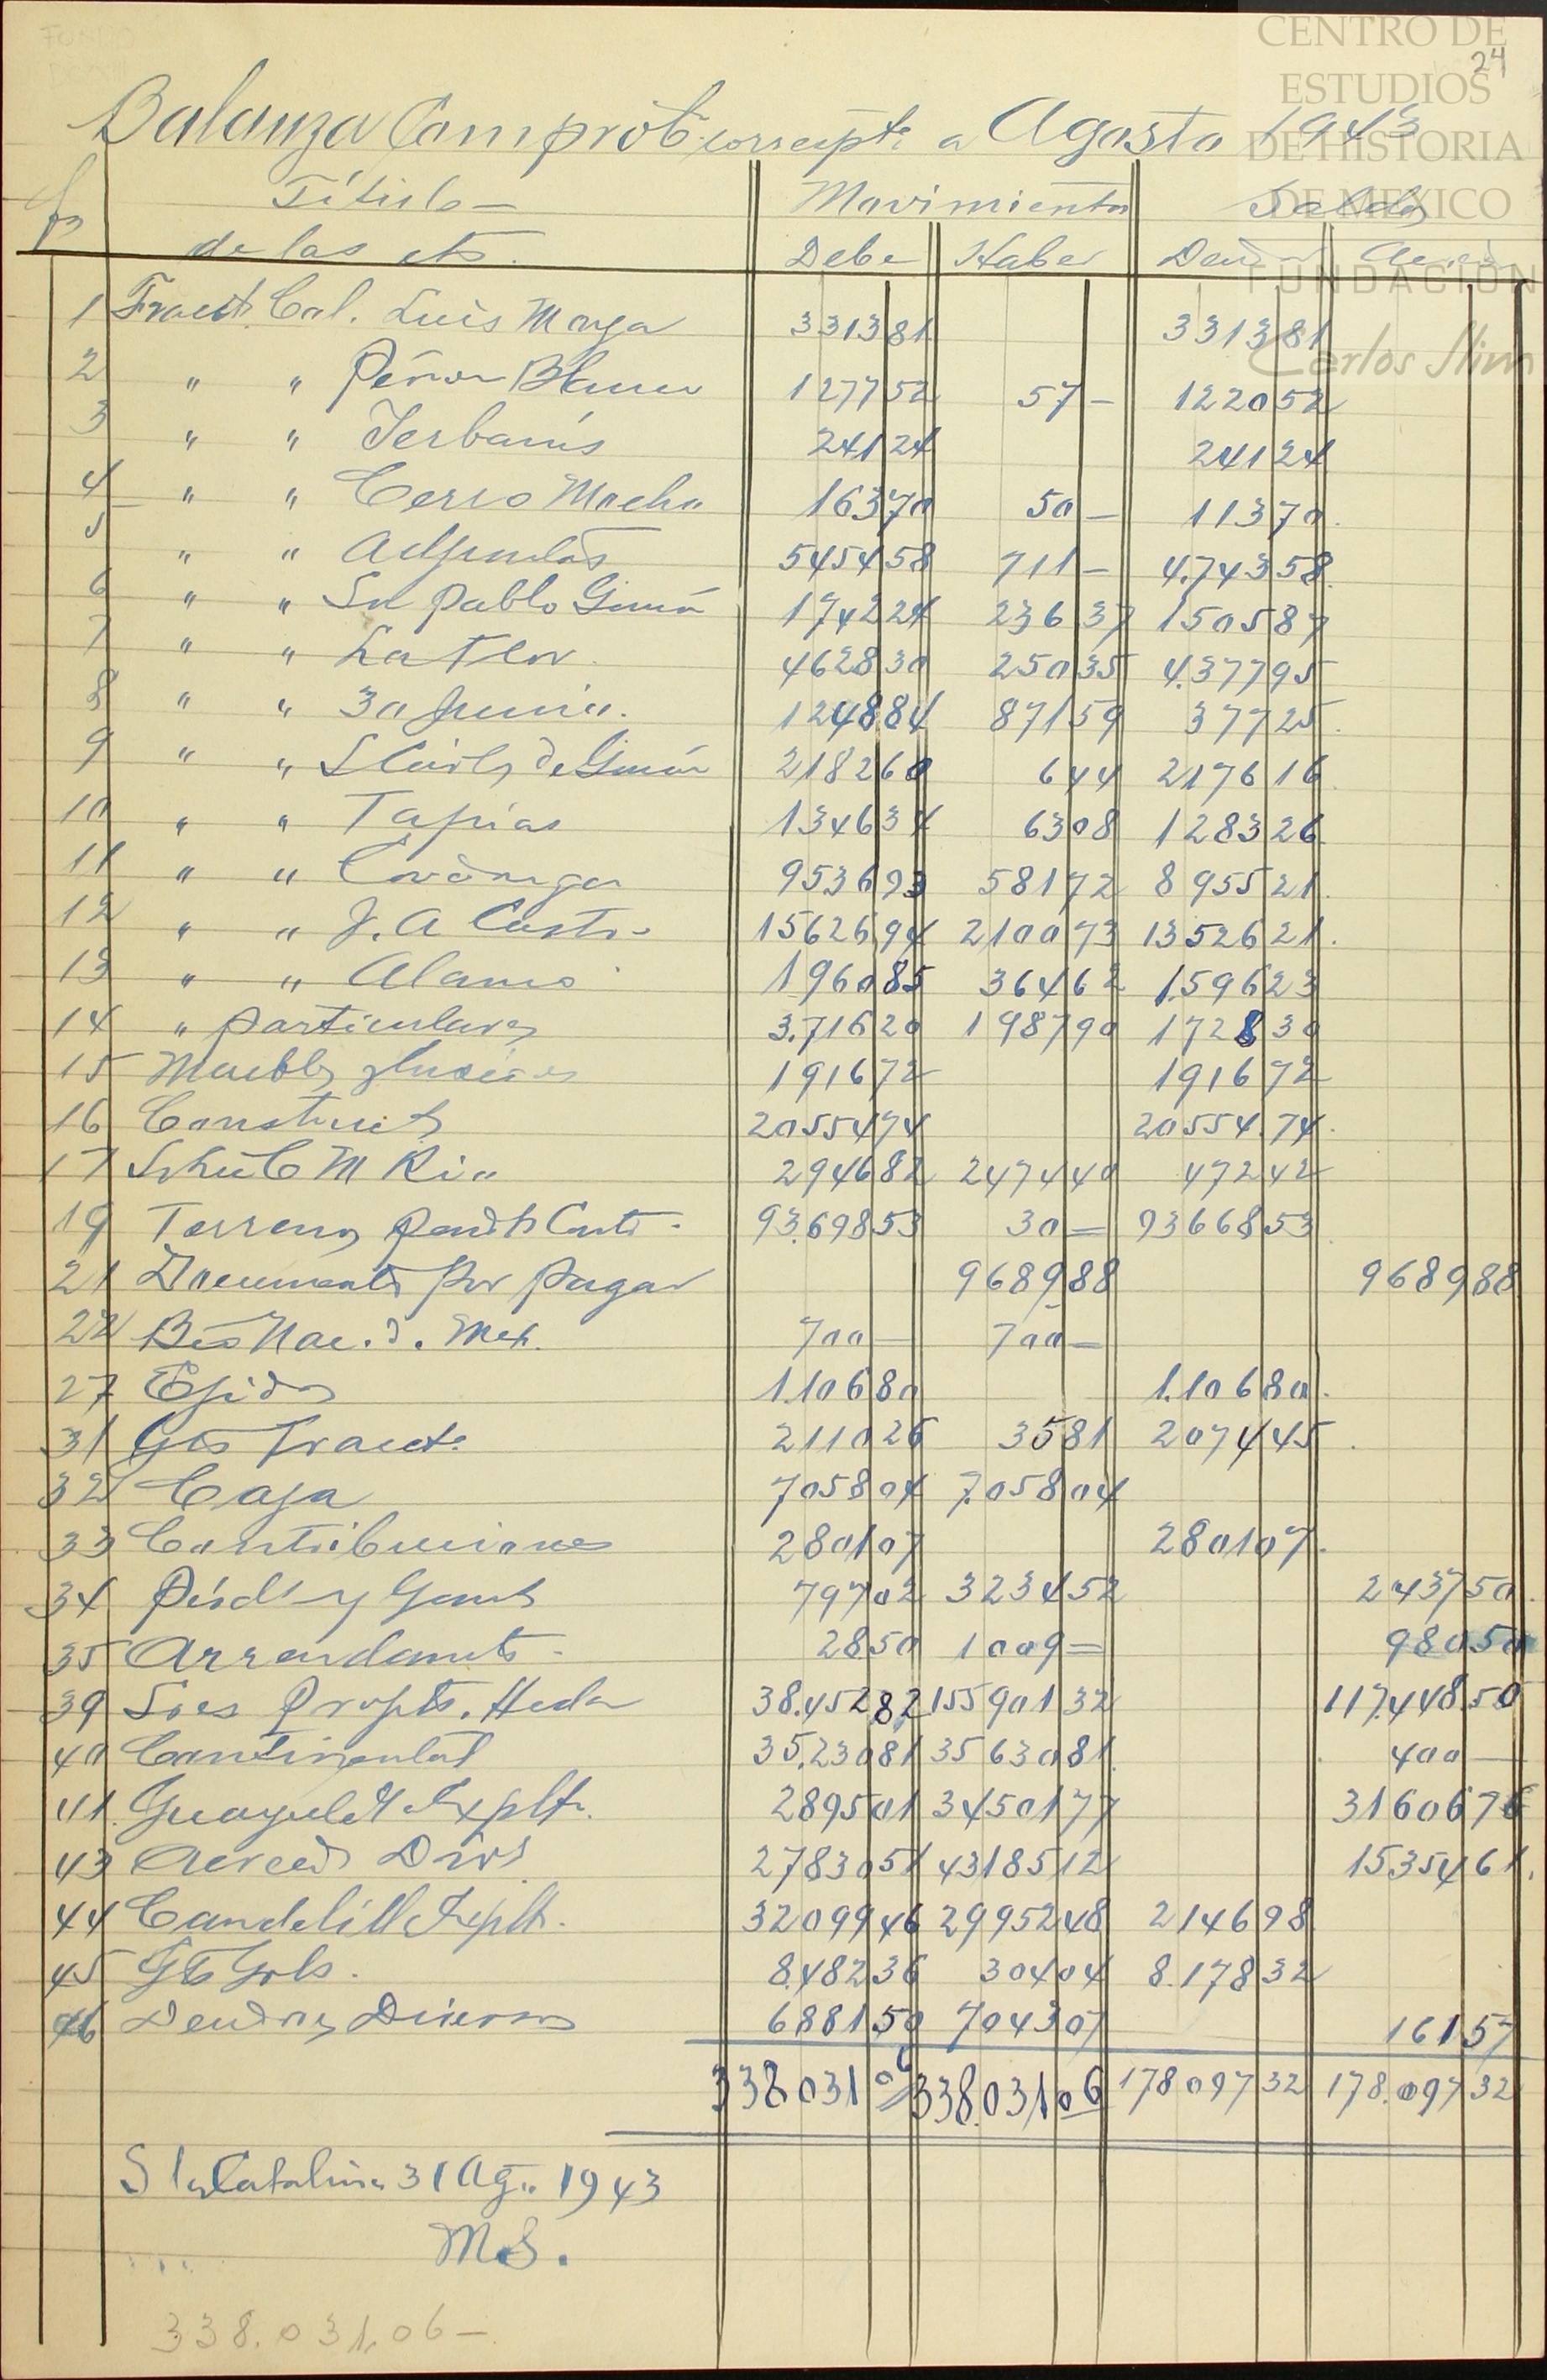 CENTRO DE
ESTUDIOS
DE HISTORIA
DE MEXICO
FUNDACIÓN
Carlos Slim
24
Balanza Comprob. correspte a Agosto 1943
Título Movimiento Saldos
de las cts. Debe Haber
1 Fractt. Col. Luis Moya 331381 331381
2 " " Peñon Blanco 127752 57— 122052
3 " " Yerbanis 24124 24124
4 " " Cerro Mocho 16370 50— 11370
5 " " Adjuntas 545458 711— 4.74358
6 " " Sn Pablo 174224 23637 150587
7 " " La Flor 462830 25035 4.37795
8 " " 30 Junio. 124884 87159 37725
9 " " 218260 644 217616
10 " " Tapias 134634 6308 128326
11 " " 953693 58172 895521
12 " " J. A Castro 1562694 210073 1352621
13 " " Alamo 196085 36462 159623
14 " particulares 3.71620 198790 172830
15 Muebles 191672 191672
16 Construct 2055474 20554.74
17 294682 247440 47242
19 Terrenos 93.69853 30= 9366853
21 Documents por pagar 968988 968988
22 Bco Nac. d. Mex. 700— 700=
27 Ejidos 1.10680 1.10680
31 Gts Fractt. 211026 3581 207445
32 Caja 705804 7.05804
33 Contribuciones 280107 280107
34 79702 323452 243750
35 Arrendamts 2850 1009= 98050
39 38.45282 15590132 117.44850
40 Continental 35.23081 3563081 400—
41 Guayule Explt. 289501 3450177 3160676
43 Acreeds Divs 2783051 4318512 1535461
44 Candelilla Explt. 3209946 2995248 214698
45 Gts Grls. 8.48236 30404 8.17832
46 Deudores Diversos 688150 704307 16157
338.03106 338.03106 17809732 178.09732
Sta Catalina 31 Ago. 1943
M.S.
338.031,06—